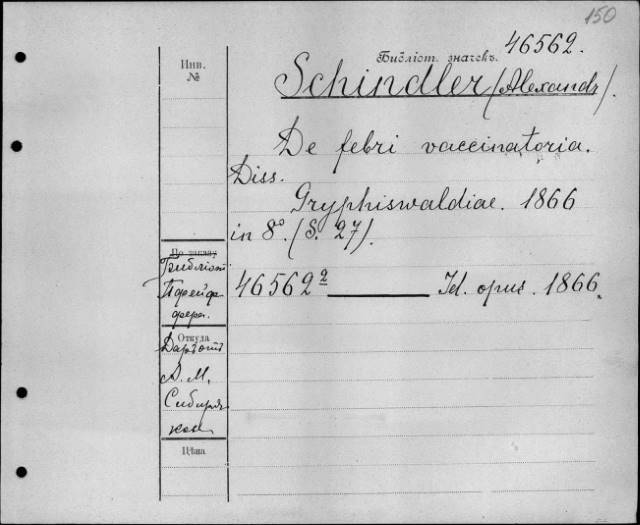 150
46562.
Библіот. значекъ.
Инв.
№
Schindler (Alexandr).
De febri vaccinatoria.
Diss.
Gryphiswaldiae. 1866
in 8°. (S. 27).
По заказу
Библіот
Пфейф-
фера.
46562² ——— Id. opus. 1866.
Откуда
Даръ отъ
А. М.
Сибиря-
кова
Цѣна